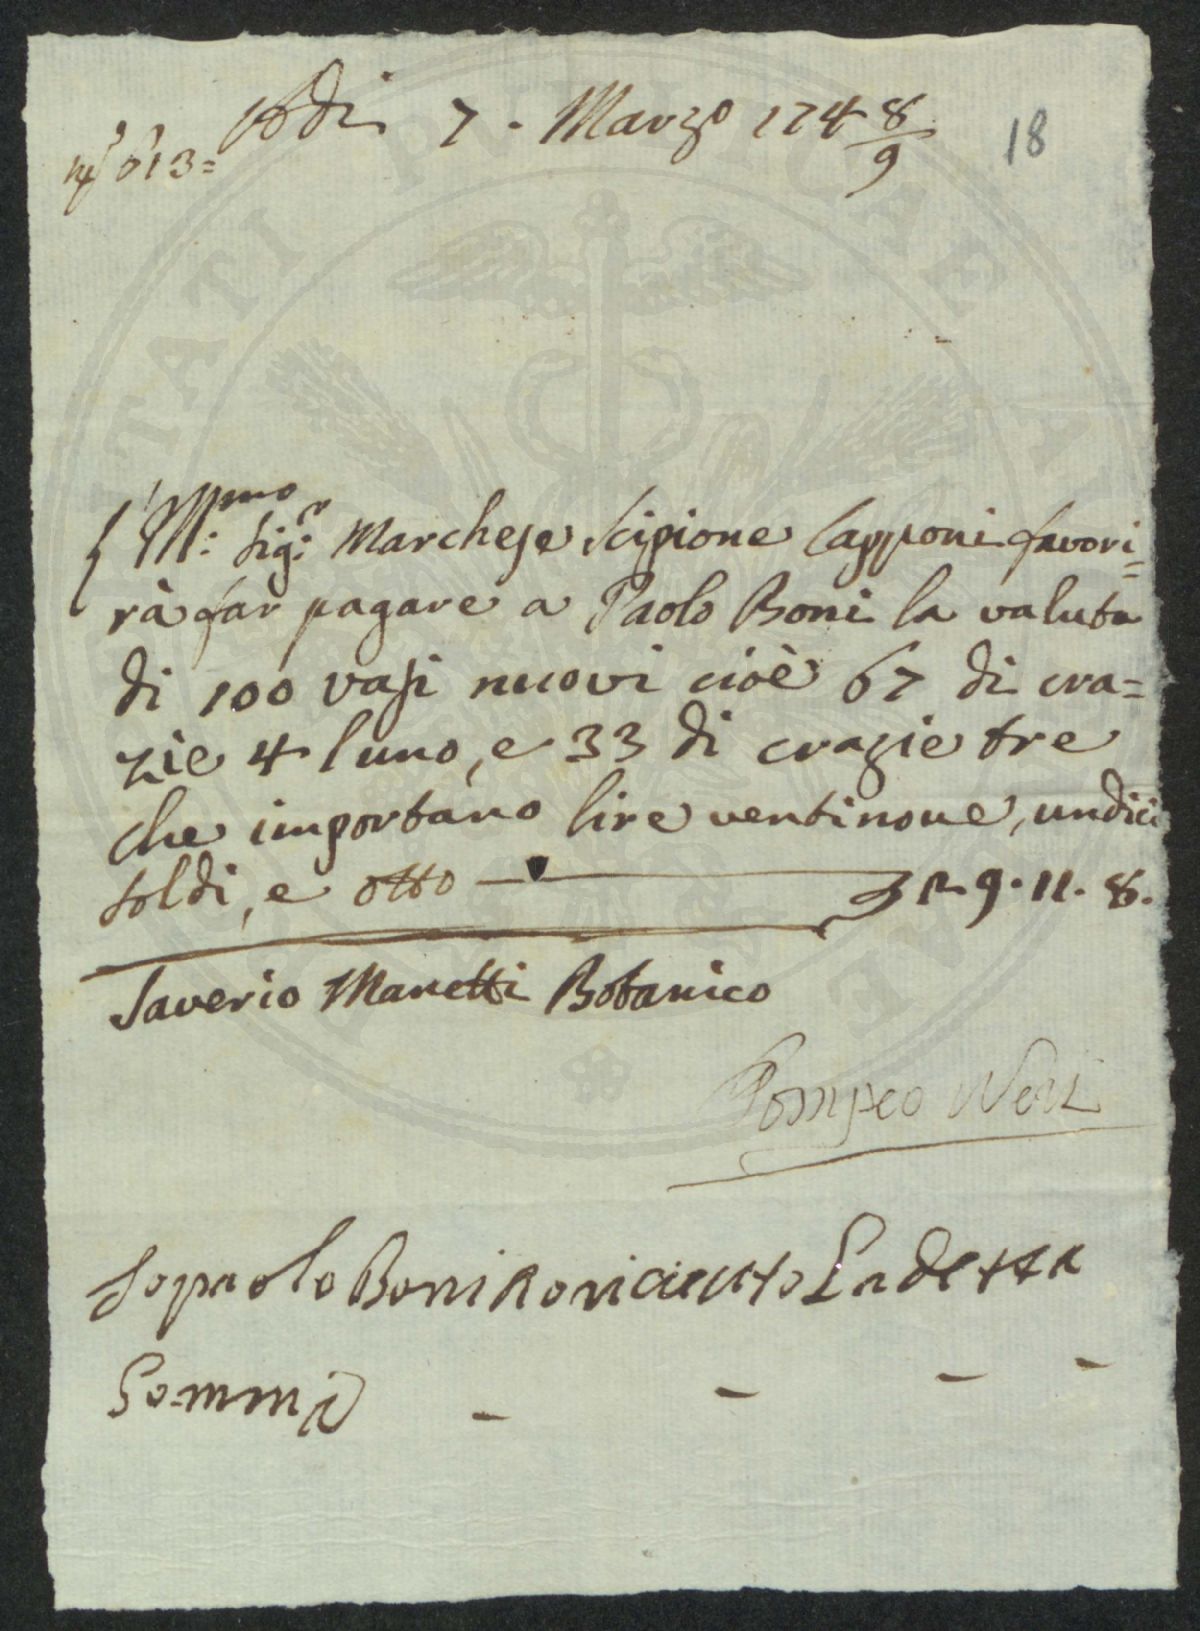 Adi 7. Marzo 1748/9
18
n.º 613=
L'Ill:mo Sig:r Marchese Scipione Capponi favori=
rà far pagare a Paolo Boni la valuta
di 100 vasi nuovi cioè 67 di cra=
zie 4 l'uno, e 33 di crazie tre
che importano lire ventinove, undici
soldi, e otto — 9.11.8.
Saverio Manetti Botanico
Pompeo Neri
Io paolo Boni La detta
Somma - - -
UTILITATI PUBLICAE